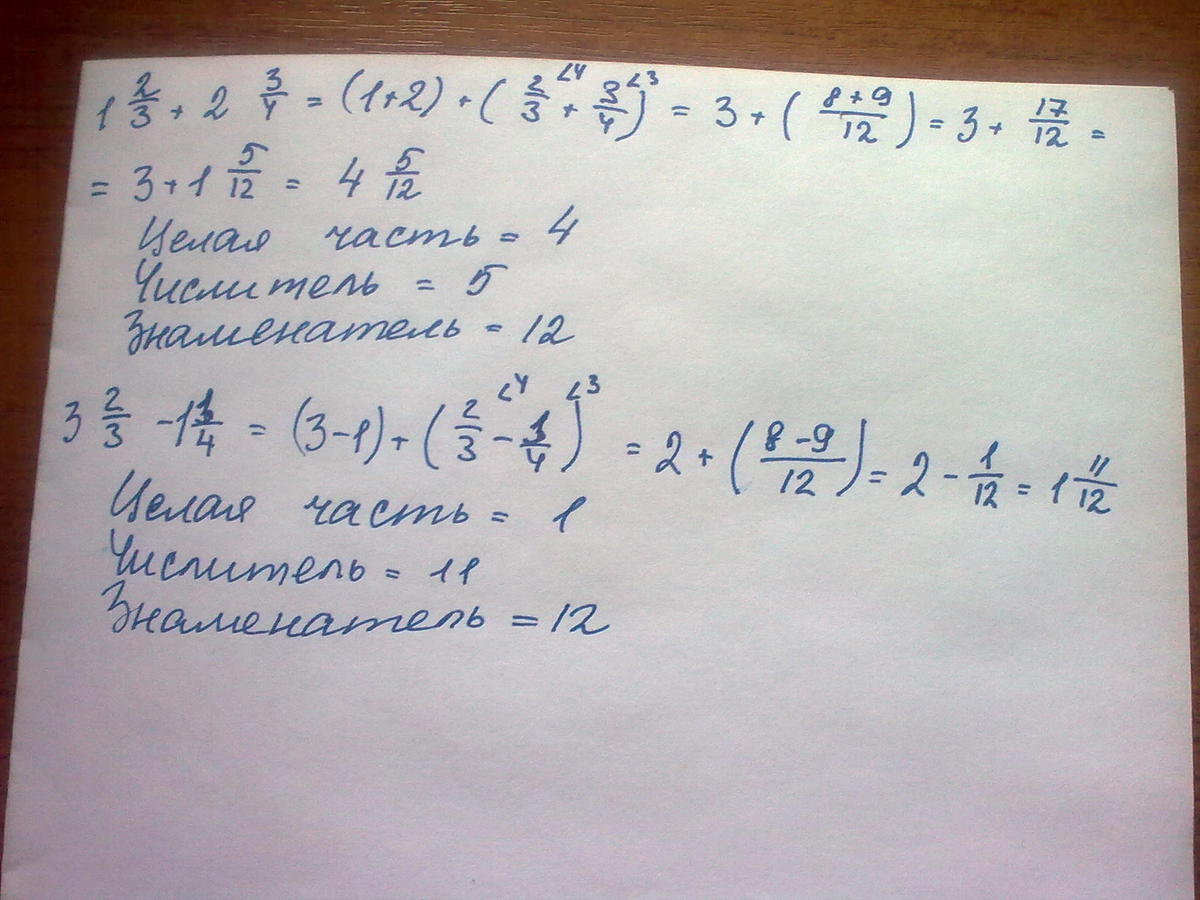 1 2/3 + 2 3/4 = (1+2) + ( 2/3 ∠4 + 3/4 ∠3 ) = 3 + ( 8+9/12 ) = 3 + 17/12 =
= 3 + 1 5/12 = 4 5/12
Целая часть = 4
Числитель = 5
Знаменатель = 12
3 2/3 - 1 3/4 = (3-1) + ( 2/3 ∠4 - 3/4 ) ∠3 = 2 + ( 8-9/12 ) = 2 - 1/12 = 1 11/12
Целая часть = 1
Числитель = 11
Знаменатель = 12